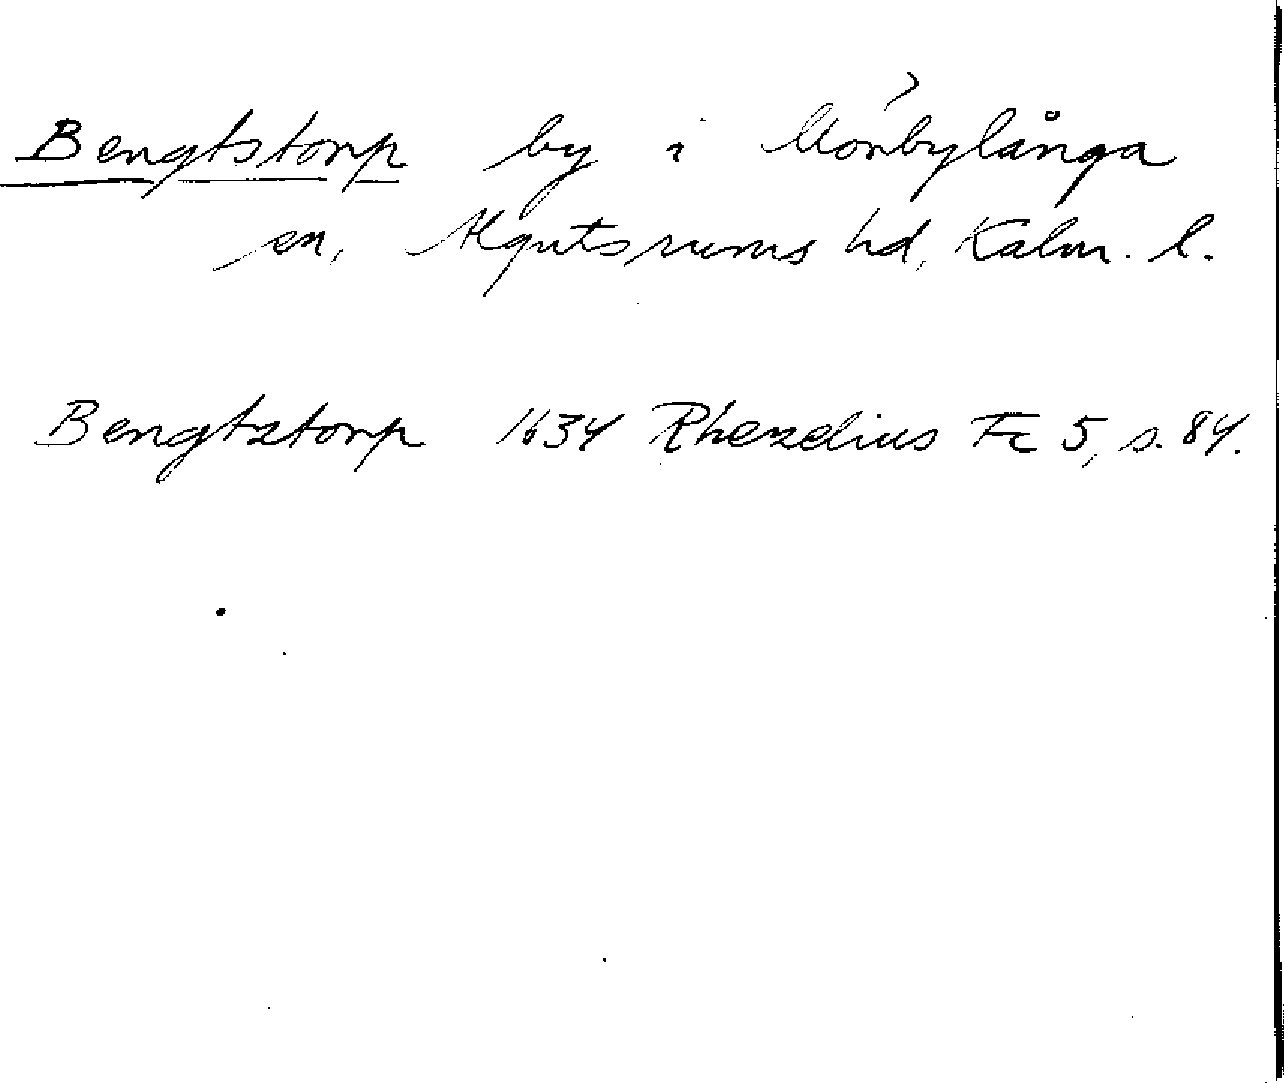 Bengtstorp by i Mörbylånga
sn, Algutsrums hd, Kalm. l.
Bengtztorp 1634 Rhezelius Fc 5, s. 84.